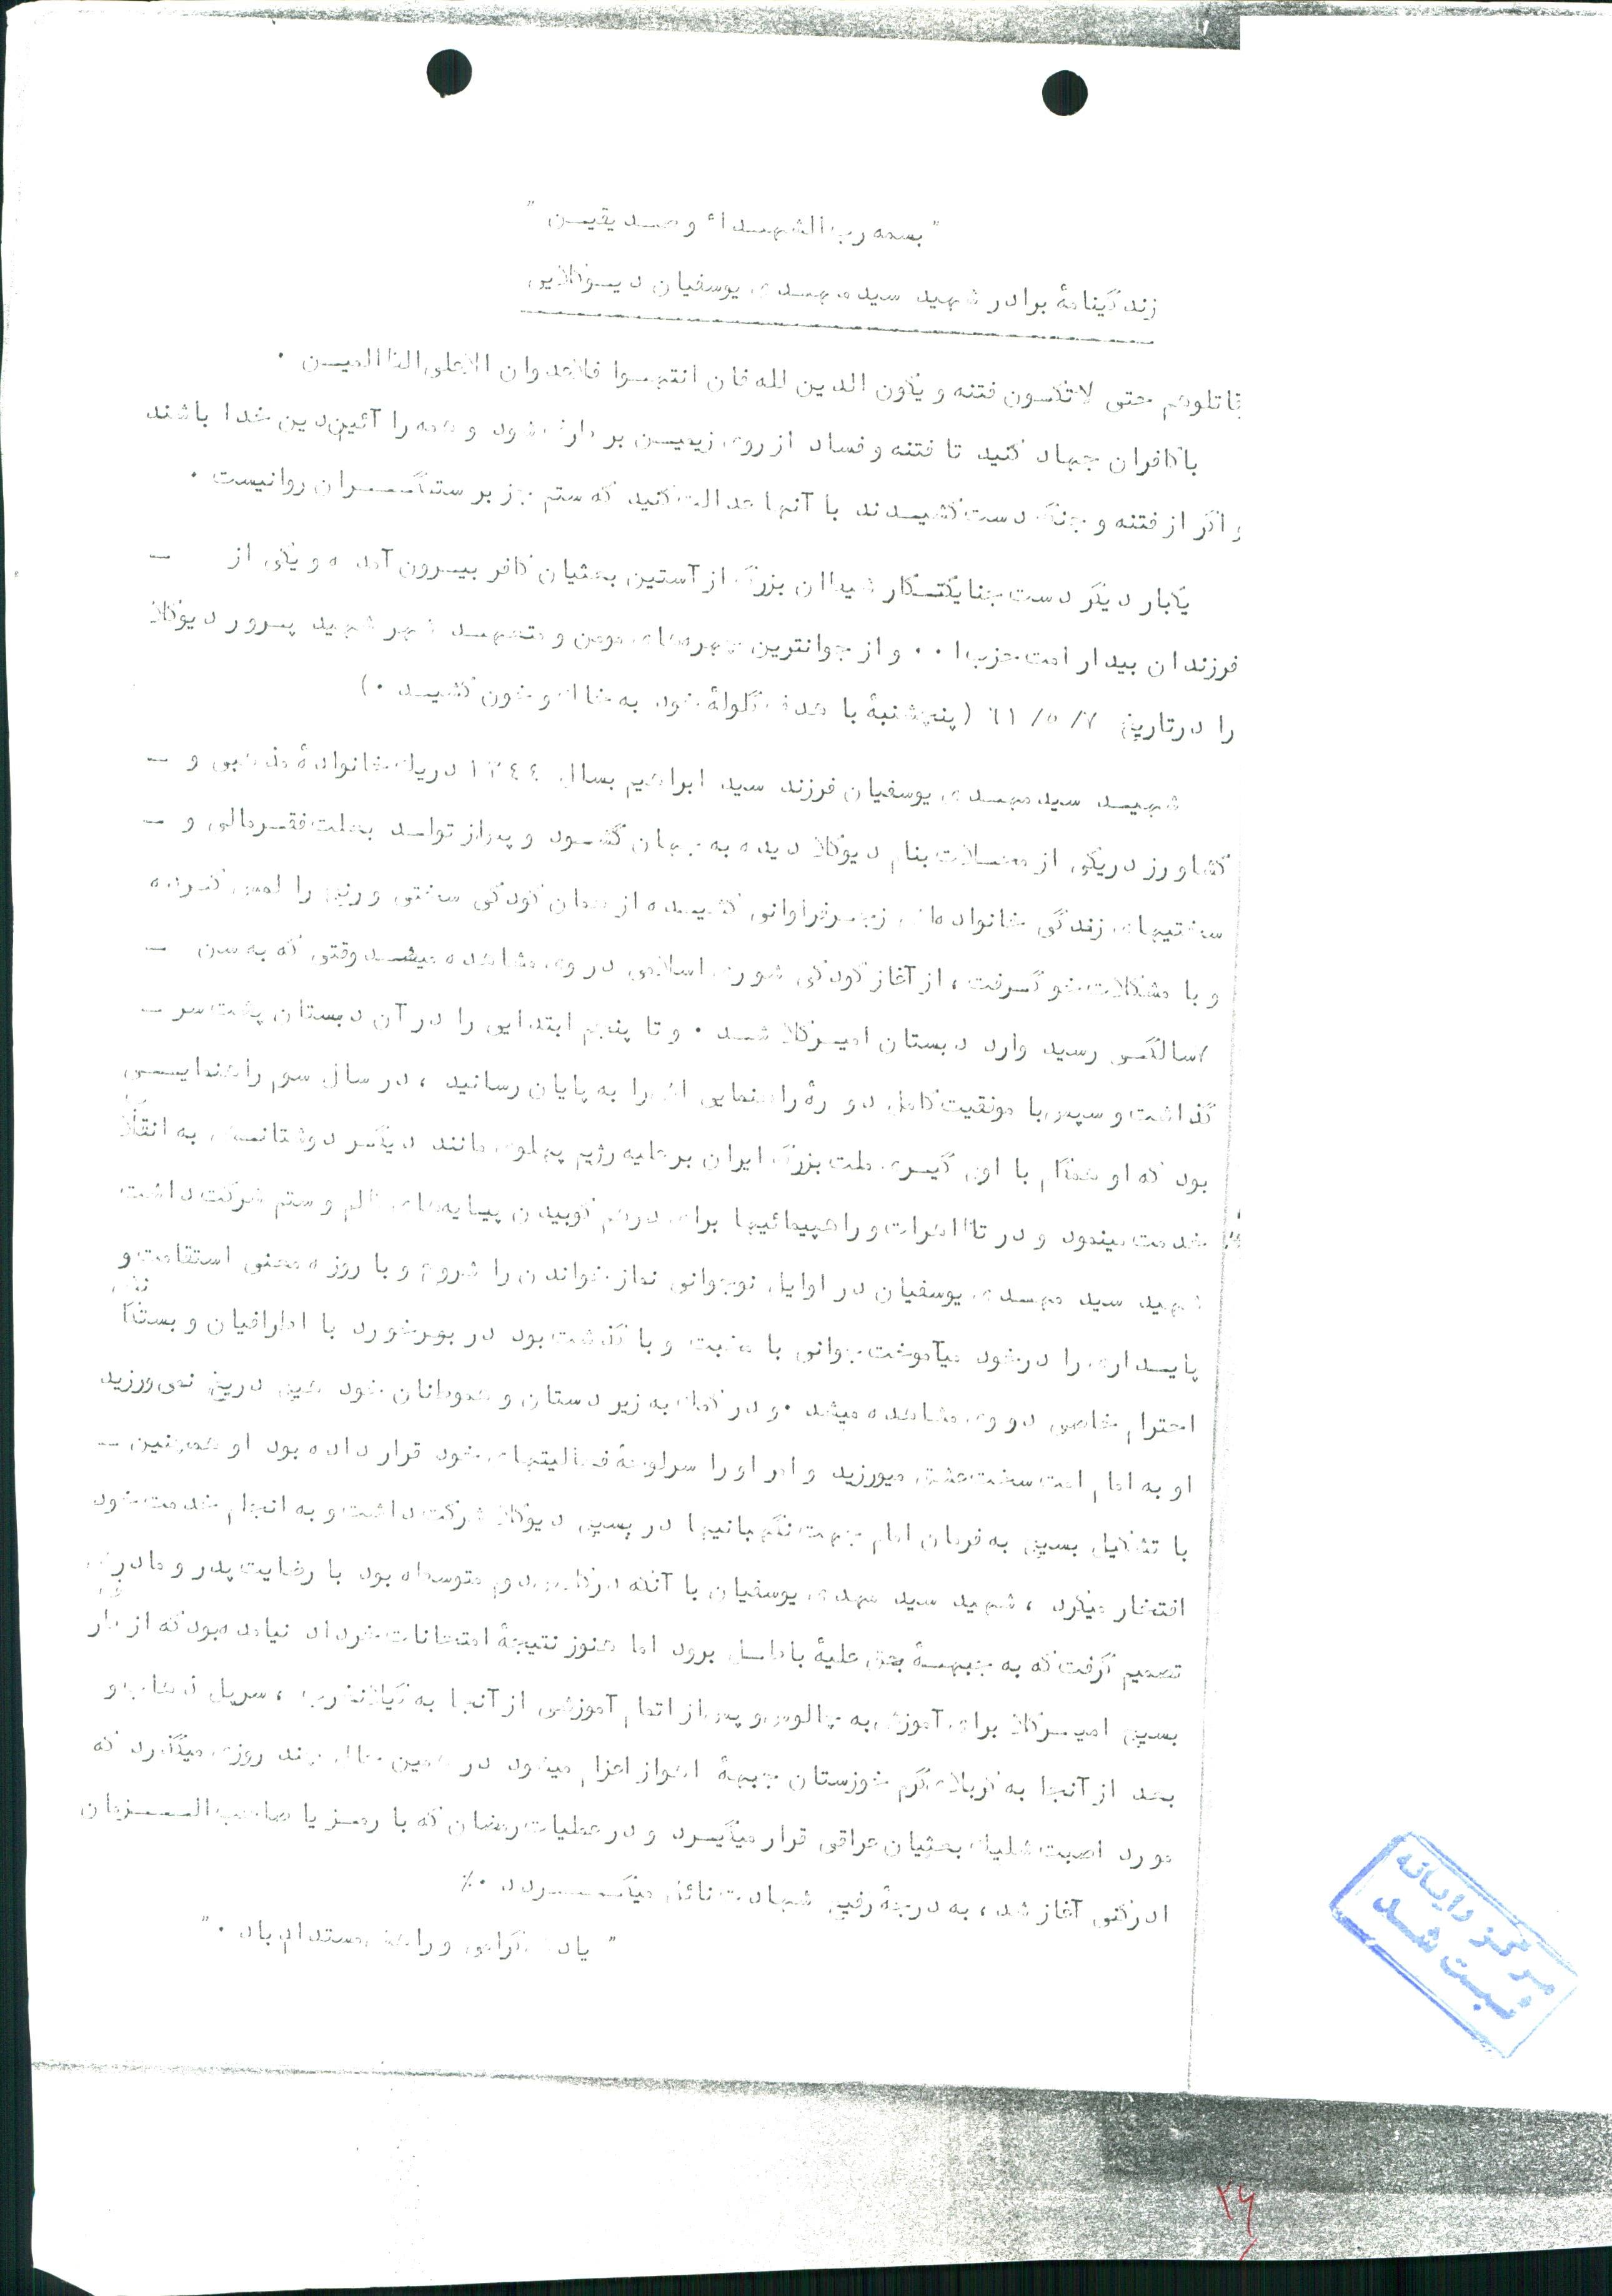 "بسمه رب الشهداء و صدیقین"
زندگینامهٔ برادر شهید سید مهدی یوسفیان دیوکلایی
قاتلوهم حتی لا تکون فتنه و یکون الدین لله فان انتهوا فلا عدوان الا علی الظالمین .
با کافران جهاد کنید تا فتنه و فساد از روی زمین بر طرف شود و همه را آئین دین خدا باشند
و اگر از فتنه و جنگ دست کشیدند با آنها عدالت کنید که ستم جز بر ستمگران روا نیست .
یکبار دیگر دست جنایتکار شیطان بزرگ از آستین بعثیان کافر بیرون آمده و یکی از -
فرزندان بیدار امت حزب ا . . و از جوانترین چهره‌های مومن و متعهد شهر شهید پرور دیوکلا
را در تاریخ ۶۱/۵/۷ (پنجشنبهٔ با هدف گلولهٔ خود به خاک و خون کشید . )
شهید سید مهدی یوسفیان فرزند سید ابراهیم بسال ۱۳۴۴ در یک خانوادهٔ مذهبی و -
کشاورز در یکی از محلات بنام دیوکلا دیده به جهان گشود و پس از تولد بعلت فقر مالی و -
سختیهای زندگی خانواده‌اش زجر فراوانی کشیده از همان کودکی سختی و رنج را لمس کرده
و با مشکلات خو گرفت ، از آغاز کودکی شور اسلامی در وی مشاهده میشد وقتی که به سن -
سالگی رسید وارد دبستان امیرکلا شد . و تا پنجم ابتدایی را در آن دبستان پشت سر -
گذاشت و سپس با موفقیت کامل دورهٔ راهنمایی اش را به پایان رسانید ، در سال سوم راهنمایی
بود که او همگام با اوج گیری ملت بزرگ ایران بر علیه رژیم پهلوی مانند دیگر دوستانش به انقلاب
خدمت مینمود و در تظاهرات و راهپیمائیها برای درهم کوبیدن پایه‌های ظلم و ستم شرکت داشت
شهید سید مهدی یوسفیان در اوایل نوجوانی نماز خواندن را شروع و با روزه معنی استقامت و
پایداری را در خود میآموخت جوانی با محبت و با گذشت بود در برخورد با اطرافیان و بستگانش
احترام خاصی در وی مشاهده میشد . و در کمک به زیر دستان و هموطنان خود هیچ دریغ نمی‌ورزید
او به امام امت سخت عشق میورزید و امر او را سرلوحهٔ فعالیتهای خود قرار داده بود او همچنین -
با تشکیل بسیج به فرمان امام جهت نگهبانیها در بسیج دیوکلا شرکت داشت و به انجام خدمت خود
افتخار میکرد ، شهید سید مهدی یوسفیان با آنکه در کلاس دوم متوسطه بود با رضایت پدر و مادرش
تصمیم گرفت که به جبههٔ حق علیهٔ باطل برود اما هنوز نتیجهٔ امتحانات خرداد نیامده بود که از طرف
بسیج امیرکلا برای آموزش به چالوس و پس از اتمام آموزشی از آنجا به گیلانغرب ، سرپل ذهاب و
بعد از آنجا به کربلای گرم خوزستان جبههٔ اهواز اعزام میشود در همین حال چند روزی میگذرد که
مورد اصبت شلیک بعثیان عراقی قرار میگیرد و در عملیات رمضان که با رمز یا صاحب الزمان
ادرکنی آغاز شد ، به درجهٔ رفیع شهادت نائل میگردد .٪
" یادش گرامی و راهش مستدام باد . "
مرکز رایانه
ثبت شد
۲۶